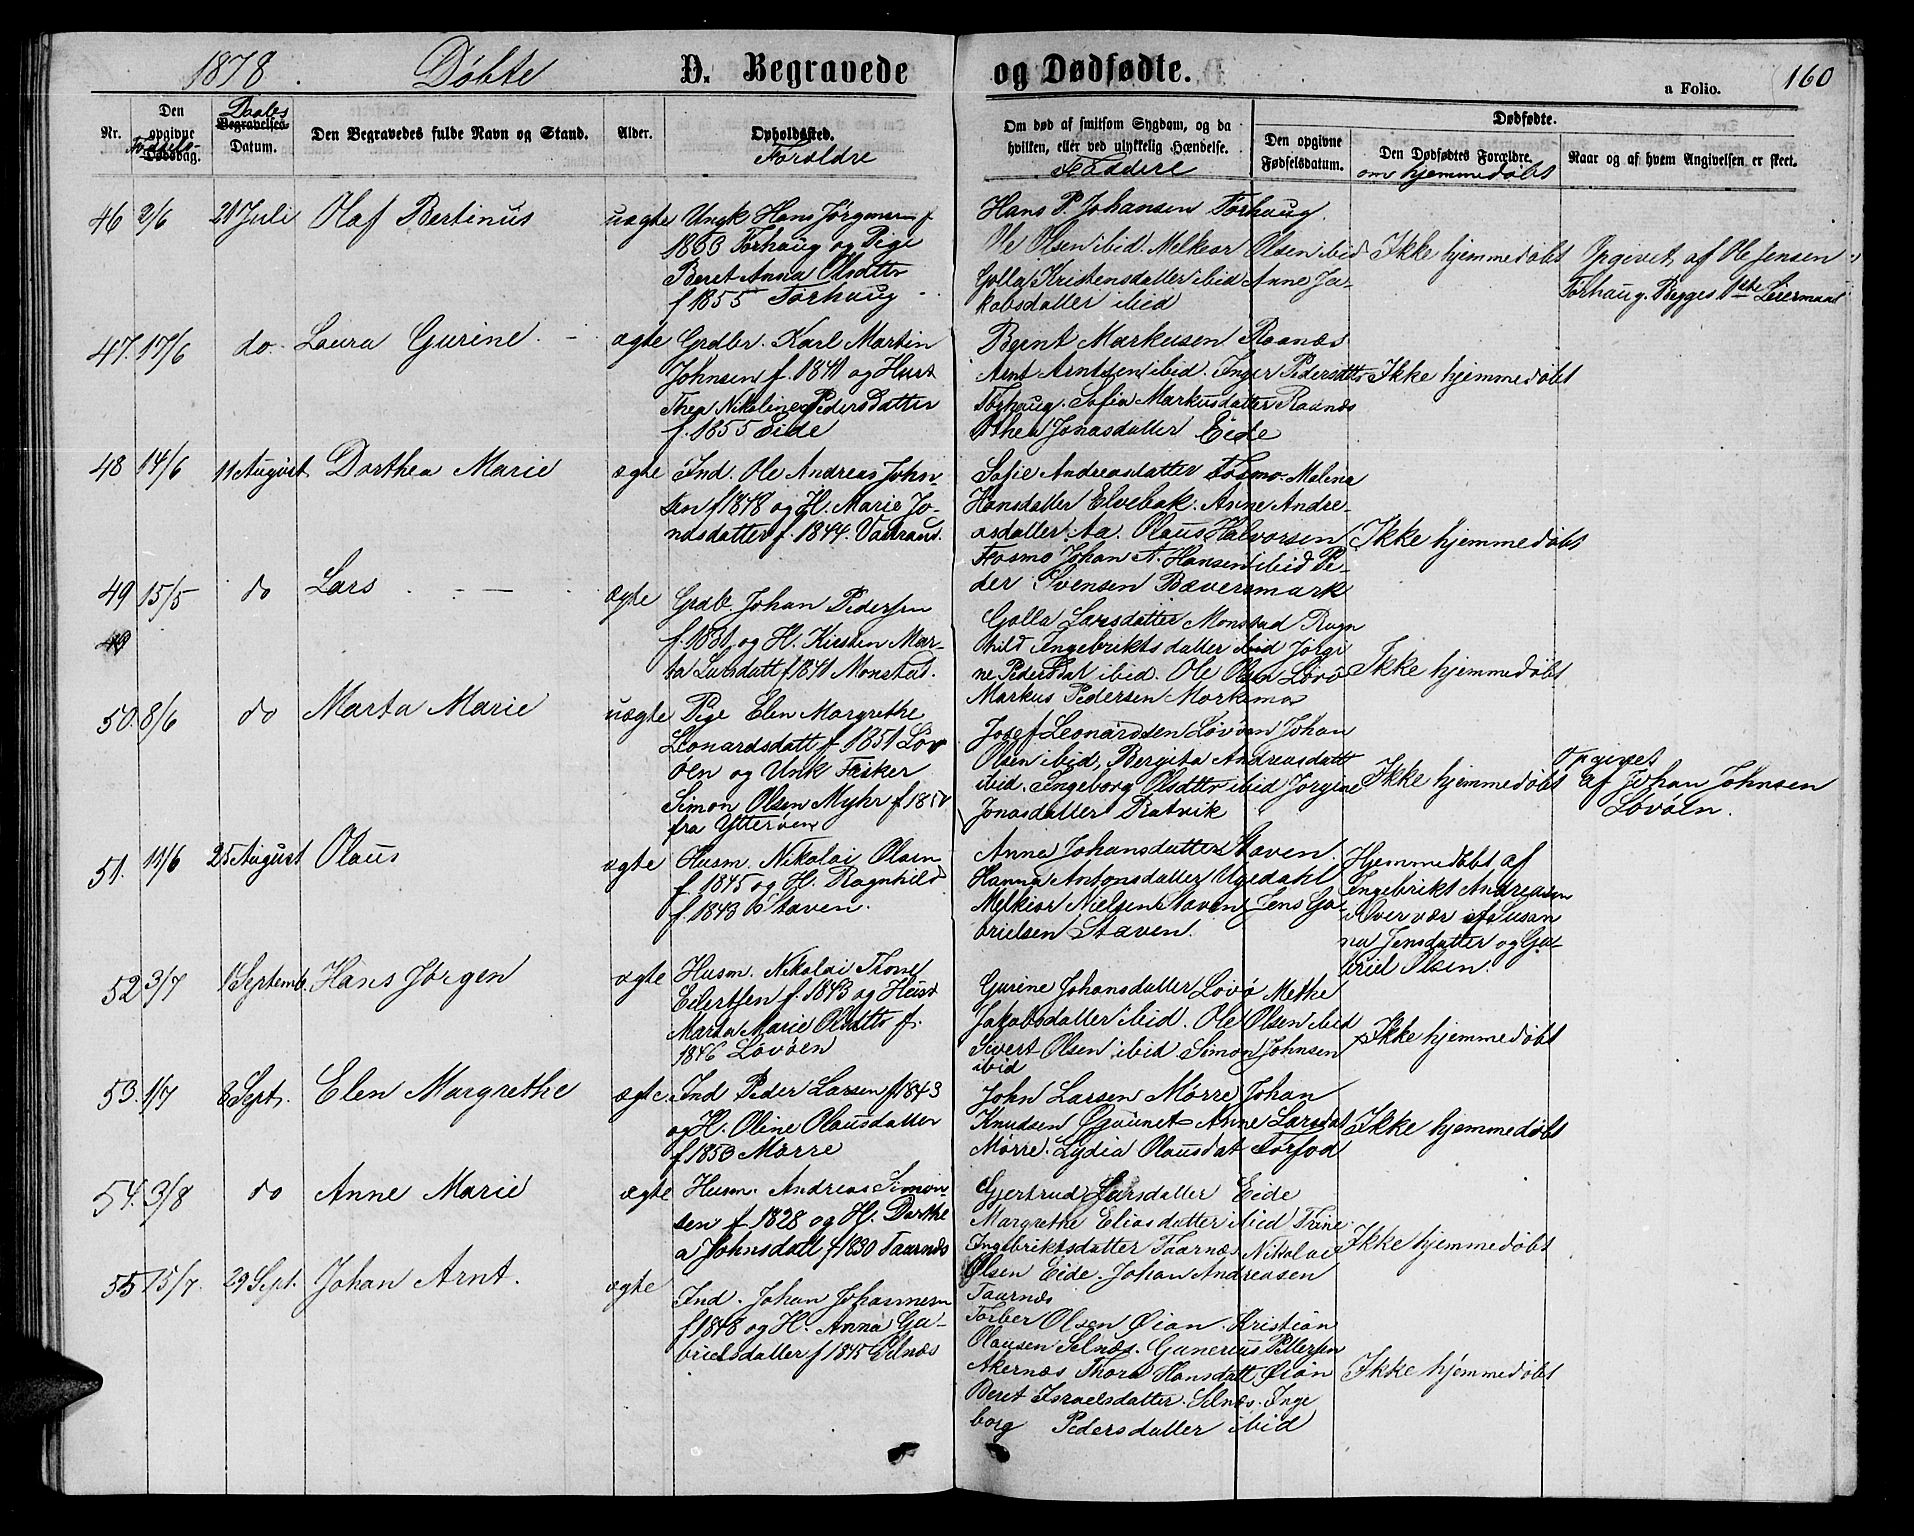 1878. Døbte D. Begravede og Dødfødte. 160
a Folio.
Nr.
Den opgivne Dødsdag. Fødsels-
Begravelses- Datum. Daabs
Den Begravedes fulde Navn og Stand.
Alder.
Opholdssted. Forældre
Om død af smitsom Sygdom, og da
hvilken, eller ved ulykkelig Hændelse.
Faddere
Dødfødte.
Den opgivne
Fødselsdatum.
Den Dødfødtes Forældre.
om hjemmedøbt
Naar og af hvem Angivelsen er skeet.
46 2/6 21 Juli Olaf Bertinus uægte
Ungk Hans Jørgensen f
1853 Forhaug og Pige
Beret Anna Olsdatter
f 1855 Forhaug
Hans P. Johansen Forhaug.
Ole Olsen ibid. Melkior Olsen ibid
Golla Kristensdatter ibid Anne Ja-
kobsdatter ibid
Ikke hjemmedøbt
Opgivet af Ole Jensen
Forhaug. Begges 1ste Leiermaal
47. 17/6 do. Laura Gurine. ægte
Grdbr. Karl Martin
Johnsen f. 1841 og Hust
Thea Nikoline Pedersdatter
f. 1855 Eide
Bernt Markusen Raanæs
Arnt Arntsen ibid. Inger Pedersdtt
Forhaug. Sofia Markusdatter Raanæs
Othea Jonasdatter Eide
Ikke hjemmedøbt
48 14/6 11 August Dorthea Marie ægte
Ind. Ole Andreas John-
sen f 1848 og H. Marie Jo-
nasdatter f. 1844.
Sofie Andreasdatter Fosmo. Malena
Hansdatter Elvebak. Anne Andre-
asdatter Aa. Olaus Halvorsen
Fosmo Johan A. Hansen ibid Pe-
der Svensen Bæversmark
Ikke hjemmedøbt
49 15/5 do Lars ægte
49
Grdb. Johan Pedersen
f. 1831 og H. Kirsten Mar-
ta Larsdatt f 1840 Monstad.
Golla Larsdatter Monstad Ragn
hild Ingebriktsdatter ibid Jørgi
ne Pedersdat ibid. Ole Olsen Løvø
Markus Pedersen Morkemo
Ikke hjemmedøbt
50. 8/6 do Marta Marie uægte
Pige Elen Margrethe
Leonardsdatt f 1851 Løv
øen og Unk Fisker
Simon Olsen Myhr f 1851
fra Ytterøen
Josef Leonardsen Løvøen Johan
Olsen ibid, Bergita Andreasdatt
ibid. Ingeborg Olsdtter ibid Jørgine
Jonasdatter Bratvik
Ikke hjemmedøbt
Opgivet
af Johan Johnsen
Løvøen.
51. 11/6 25 August Olaus ægte
Husm. Nikolai Olsen
f. 1845 og H. Ragnhild
f. 1843 Staven.
Anna Johansdatter Staven.
Hanna Antonsdatter Ugedahl
Melkior Nielsen Staven Jens Ga-
brielsen Staven.
Hjemmedøbt af
Ingebrikt Andreasen
i Overvær af Susan
na Jensdatter og Ga-
briel Olsen.
52 3/7 1 Septemb. Hans Jørgen ægte
Husm. Nikolai Trone
Eilertsen f. 1843 og Hust
Marta Marie Olsdtt f.
1846 Løvøen
Gurine Johansdatter Løvø Methe
Jakobsdatter ibid. Ole Olsen ibid
Sivert Olsen ibid Simon Johnsen
ibid
Ikke hjemmedøbt
53. 1/7 8 Sept. Elen Margrethe ægte.
Ind Peder Larsen f 1843
og H. Oline Olausdatter
f 1853 Mørre
John Larsen Mørre Johan
Knudsen Anne Larsdat
Mørre. Lydia Olausdat Torfod
Ikke hjemmedøbt
54. 3/8 do Anne Marie ægte
Husm. Andreas Simon-
sen f. 1828 og H. Dorthe
a Johnsdatt f 1830 Taarnæs
Gjertrud Larsdatter Eide
Margrethe Eliasdatter ibid Trine
Ingebriktsdatter Taarnæs Nikolai
Olsen Eide. Johan Andreasen
Taarnæs
Ikke hjemmedøbt
55 15/7. 29 Sept. Johan Arnt. ægte
Ind. Johan Johannesen
f 1848 og H. Anna Ga-
brielsdatter f 1845 Selnæs
Torber Olsen Øian. Kristian
Olausen Selnæs. Gunerius Pettersen
Akernæs Thora Hansdatt Øian
Beret Israelsdatter Selnæs. Inge
borg Pedersdatter ibid
Ikke hjemmedøbt